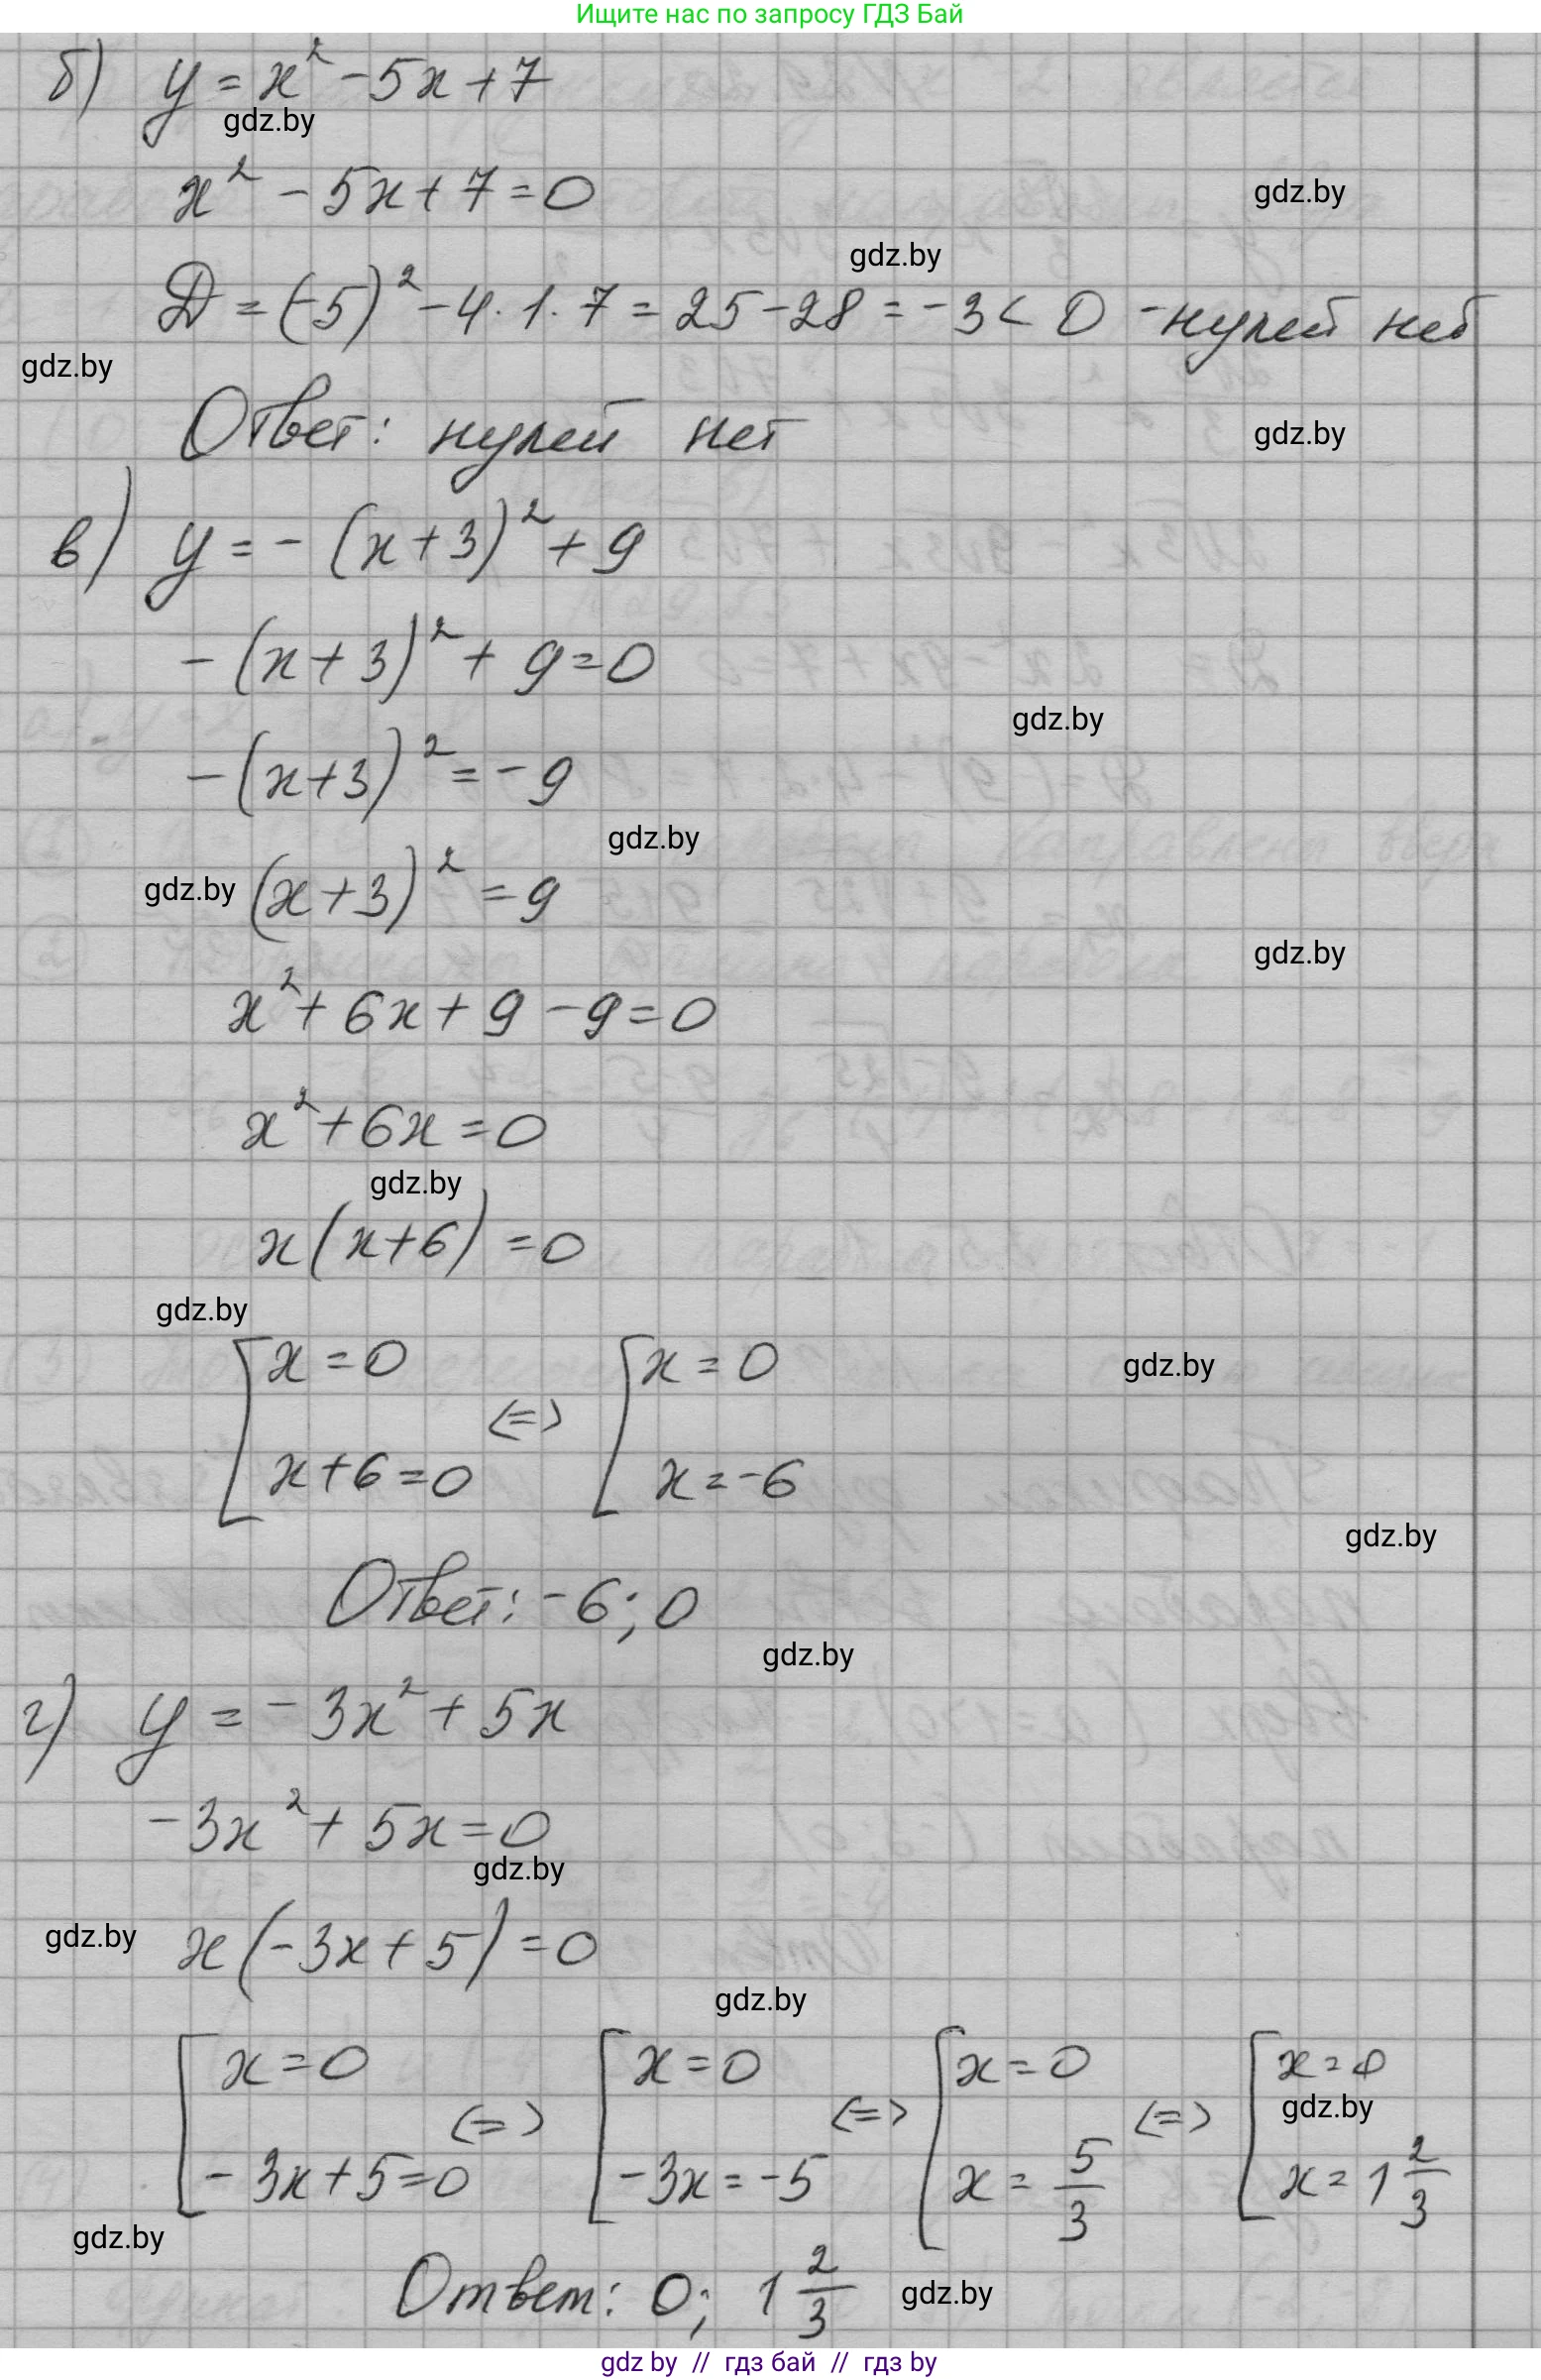 Ищите нас по запросу ГДЗ Бай
б) y = x² - 5x + 7
gdz.by
x² - 5x + 7 = 0
gdz.by
gdz.by
D = (-5)² - 4 · 1 · 7 = 25 - 28 = -3 < 0 - нулей нет
gdz.by
Ответ: нулей нет
gdz.by
в) y = - (x + 3)² + 9
- (x + 3)² + 9 = 0
gdz.by
- (x + 3)² = -9
gdz.by
gdz.by (x + 3)² = 9
gdz.by
x² + 6x + 9 - 9 = 0
x² + 6x = 0
gdz.by
x (x + 6) = 0
gdz.by
[ x = 0 [ x = 0
gdz.by
<=>
x + 6 = 0 x = -6
gdz.by
Ответ: -6; 0
gdz.by
г) y = - 3x² + 5x
- 3x² + 5x = 0
gdz.by
gdz.by x (- 3x + 5) = 0
gdz.by
[ x = 0 [ x = 0 [ x = 0 [ x = 0
<=> <=> <=> gdz.by
- 3x + 5 = 0 - 3x = -5 x = 5/3 x = 1 2/3
gdz.by
Ответ: 0; 1 2/3 gdz.by
gdz by // гдз бай // гдз by